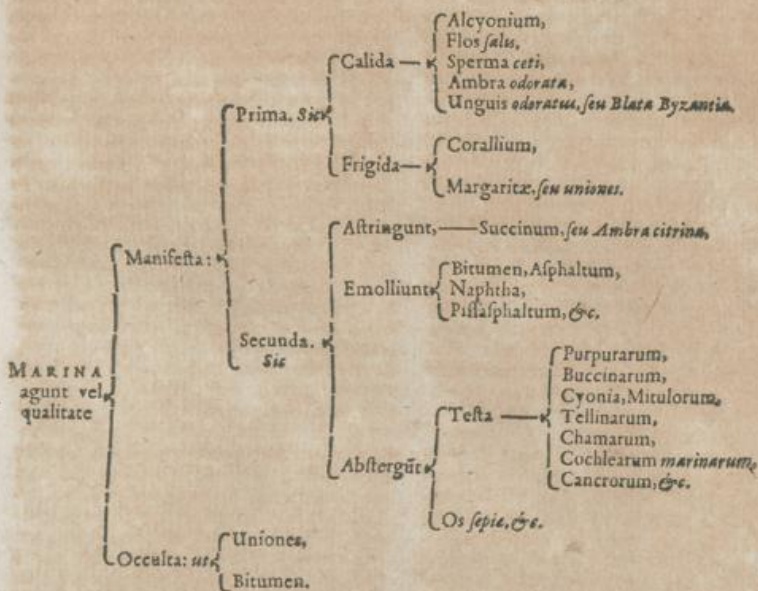 MARINA
agunt vel
qualitate
Manifesta:
Prima. Sic
Calida
Alcyonium,
Flos salis,
Sperma ceti,
Ambra odorata,
Unguis odoratus, seu Blata Byzantia.
Frigida
Corallium,
Margaritæ, seu uniones.
Secunda.
Sic
Astringunt, Succinum, seu Ambra citrina,
Emolliunt
Bitumen, Asphaltum,
Naphtha,
Pissasphaltum, &c.
Abstergūt
Testa
Purpurarum,
Buccinarum,
Cyonia, Mitulorum,
Tellinarum,
Chamarum,
Cochlearum marinarum,
Cancrorum, &c.
Os sepiæ, &c.
Occulta: ut
Uniones,
Bitumen.